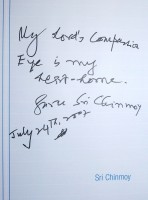 My Lord's Compassion
Eye is my
heart-home.
Sri Chinmoy
July 24th, 2002
Sri Chinmoy